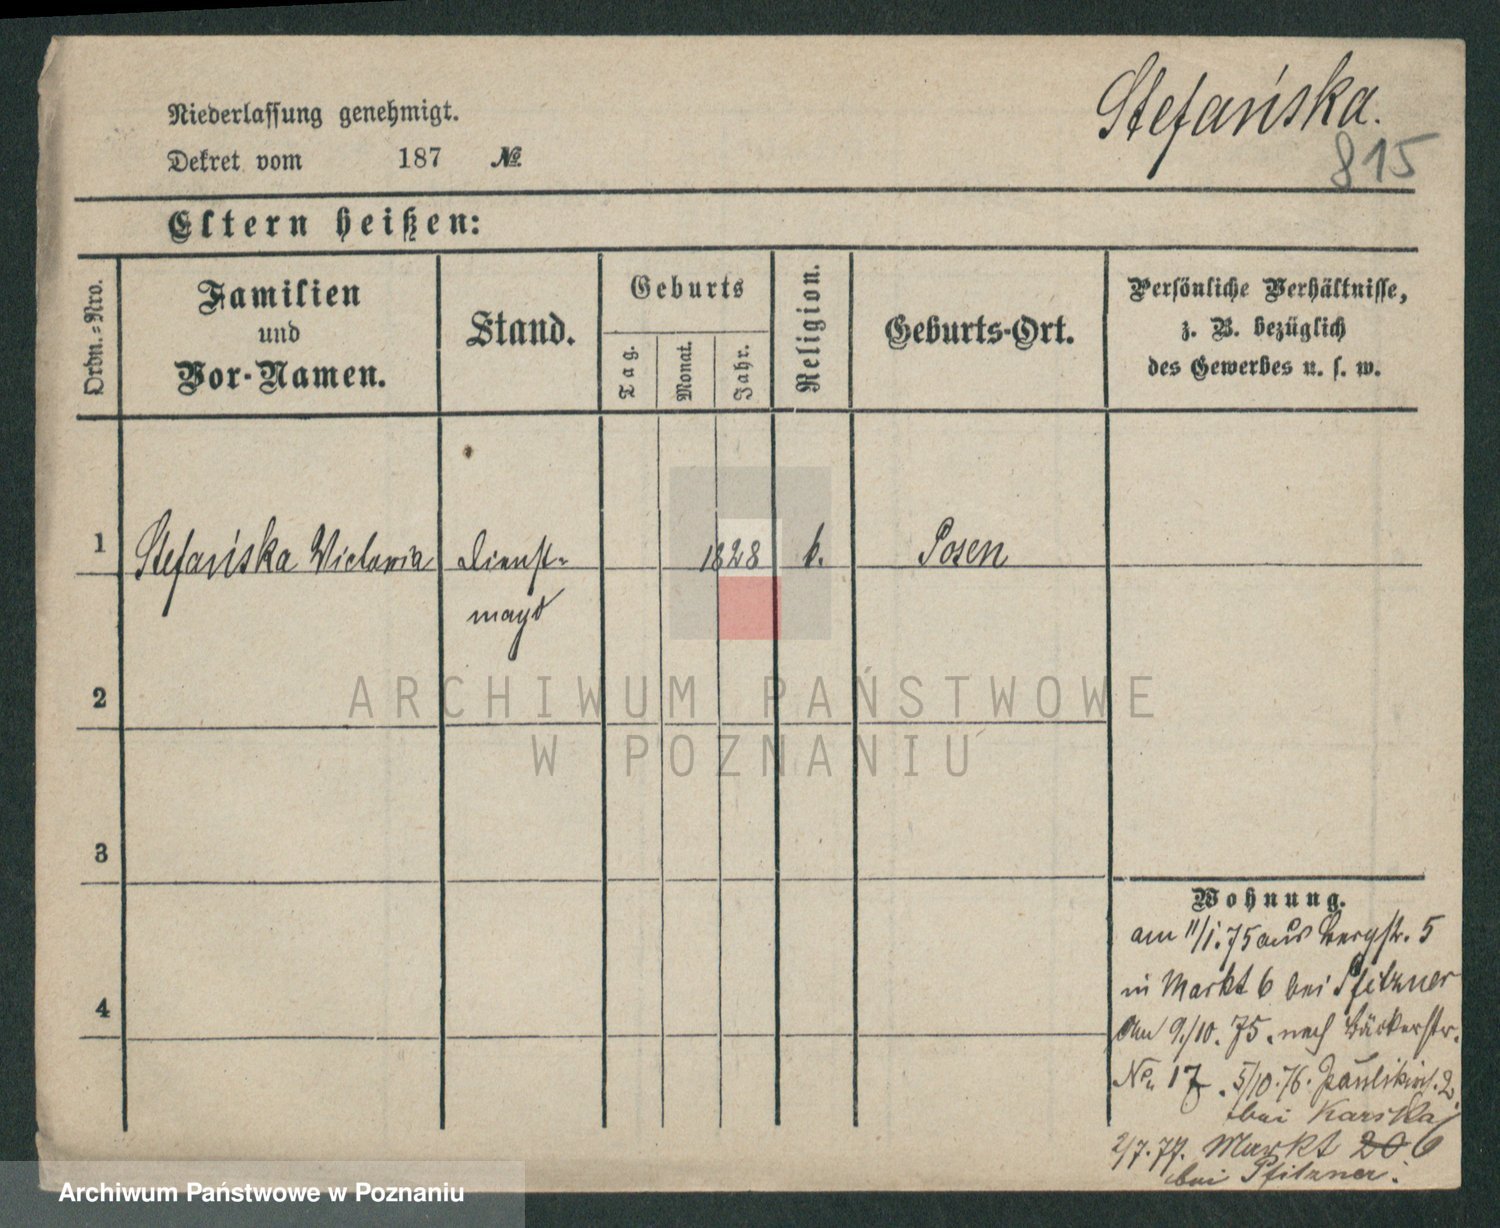 Stefańska.
815
Niederlassung genehmigt.
Dekret vom 187 №
Eltern heißen:
Ordn.-Nro.
Familien
und
Vor-Namen.
Stand.
Geburts
Tag.
Monat.
Jahr.
Religion.
Geburts-Ort.
Persönliche Verhältnisse,
z. B. bezüglich
des Gewerbes u. s. w.
1 Stefańska Victoria Dienst- 1828 k. Posen
magd
2
3
4
Wohnung.
am 11/1.75 aus Bergstr. 5
in Markt 6 bei Pfitzner
Am 9/10. 75. nach Bäckerstr.
No. 17. 5/10.76. Paulikirch. 2.
bei Karska
2/7.77. Markt 20 6
bei Pfitzner.
ARCHIWUM PAŃSTWOWE
W POZNANIU
Archiwum Państwowe w Poznaniu